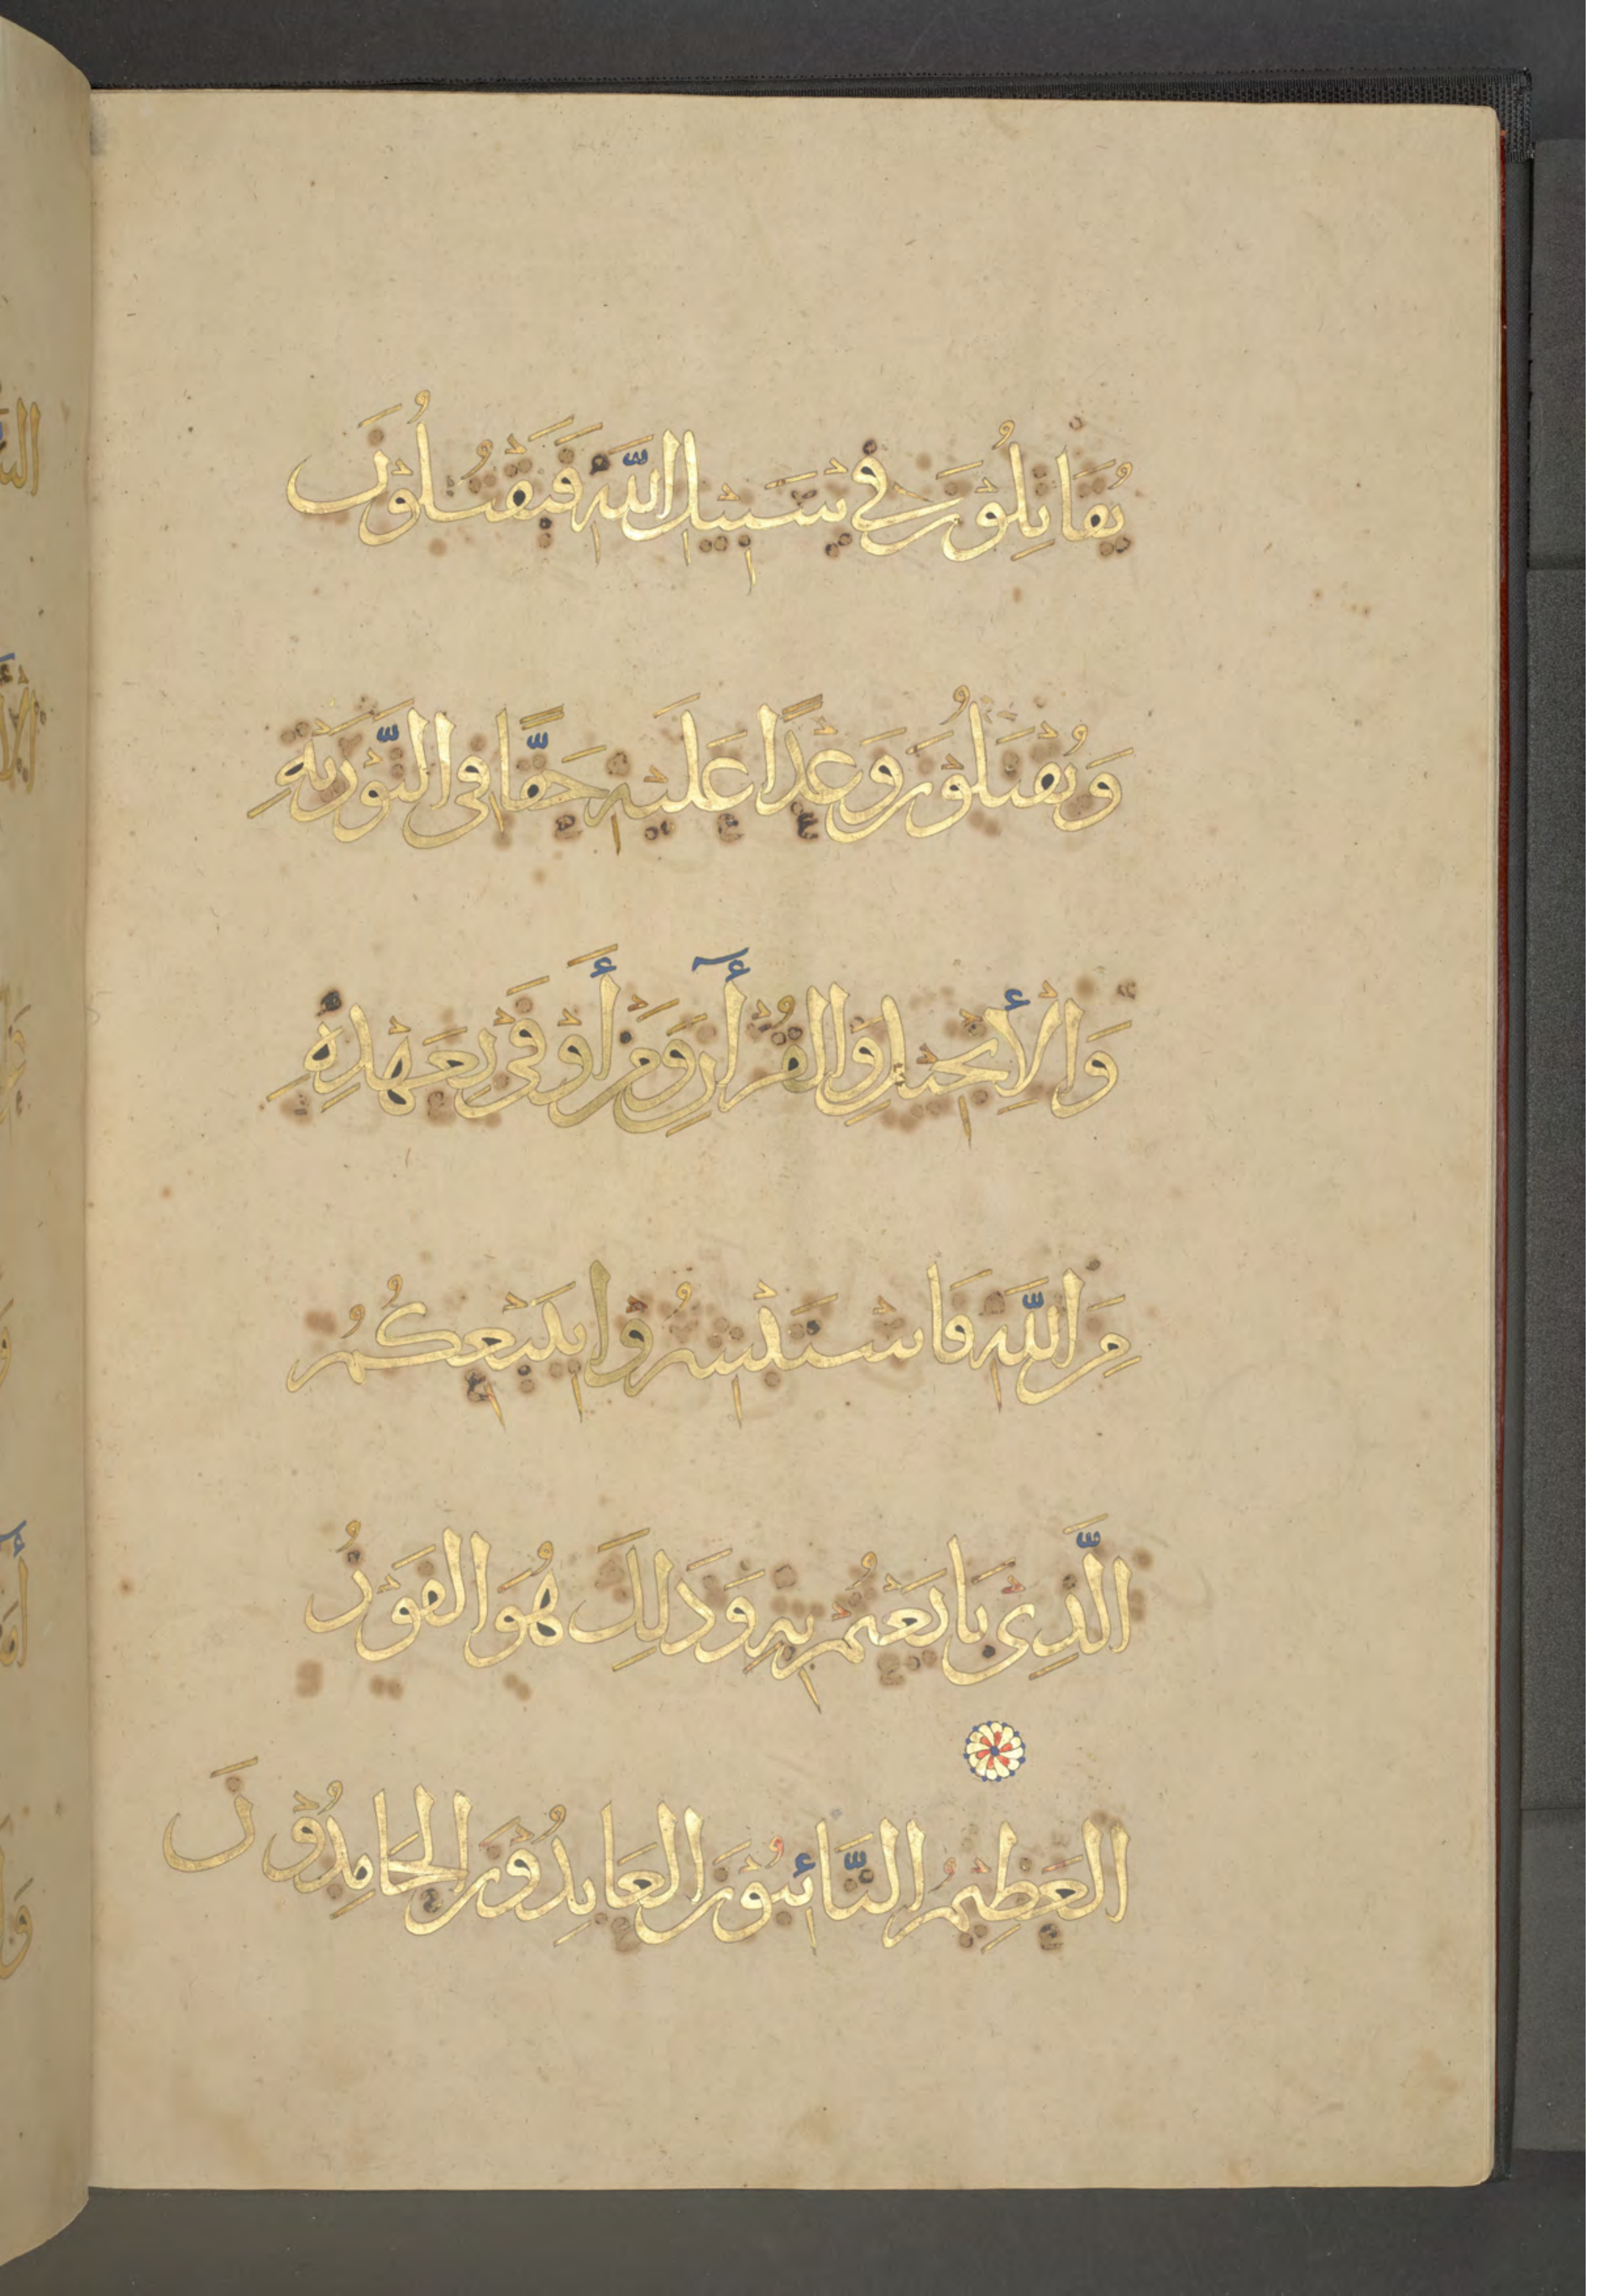 يُقَاتِلُوْنَ فِيْ سَبِيْلِ اللَّهِ فَيَقْتُلُوْنَ
وَيُقْتَلُوْنَ وَعْدًا عَلَيْهِ حَقًّا فِي التَّوْرَيٰةِ
وَالْأِنْجِيْلِ وَالْقُرْأٓنِ وَمَنْ أَوْفَى بِعَهْدِهِ
مِنَ اللَّهِ فَاسْتَبْشِرُوْا بِبَيْعِكُمُ
الَّذِيْ بَايَعْتُمْ بِهِ وَذَلِكَ هُوَ الفَوْزُ
العَظِيْمُ التَّائِبُوْنَ العَابِدُوْنَ الْحَامِدُوْنَ